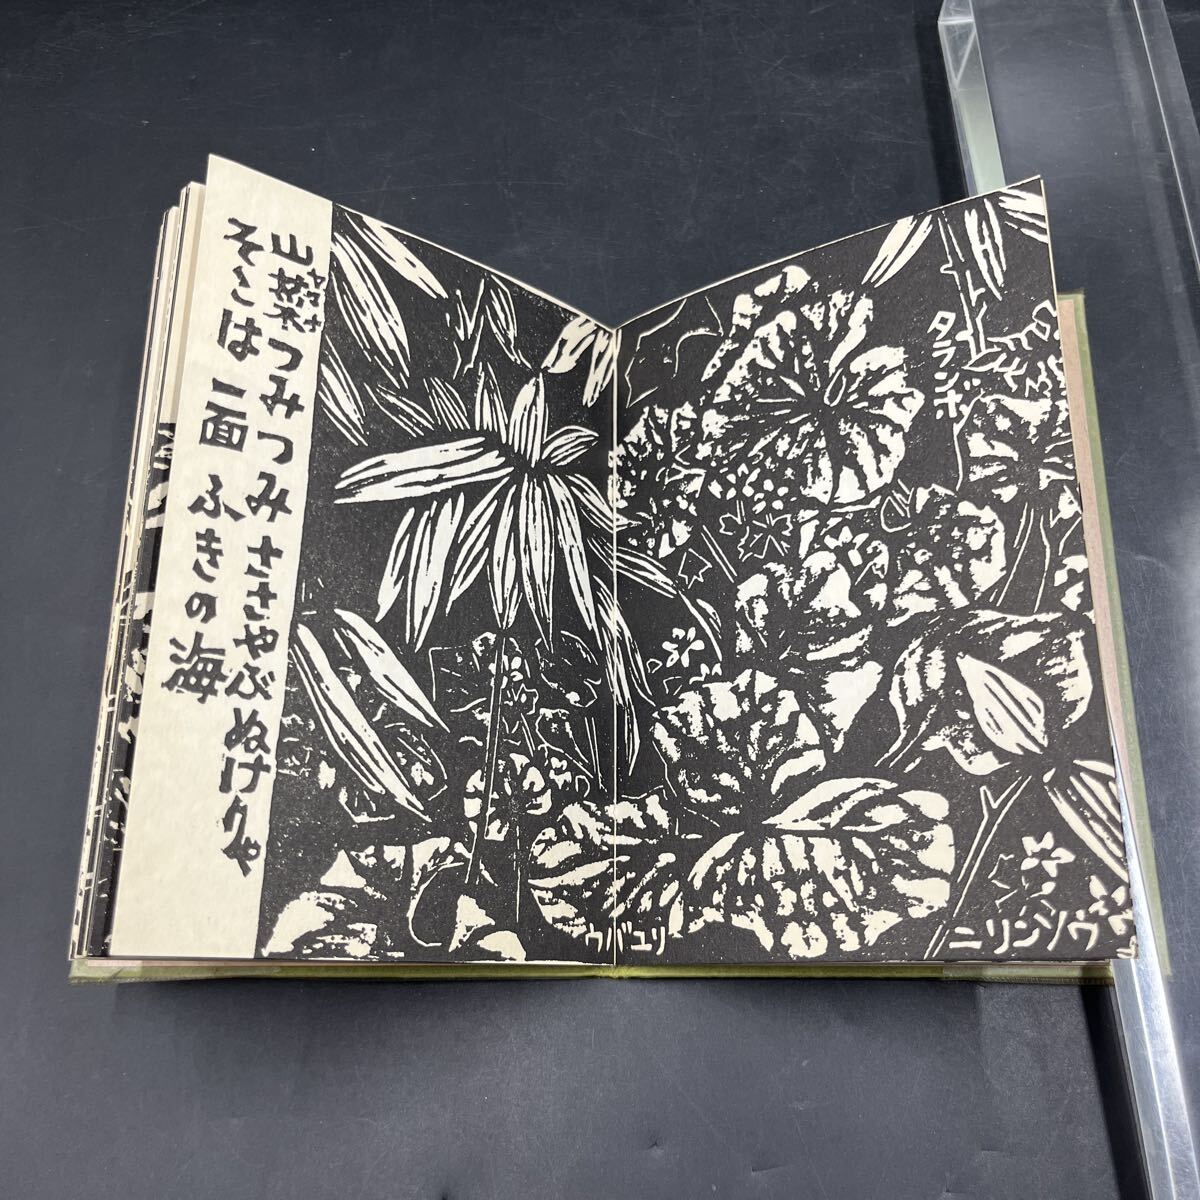 山菜つみつみささやぶぬけりゃ
ヤマナ
そこは一面ふきの海
タランボ
ウバユリ
ニリンソウ